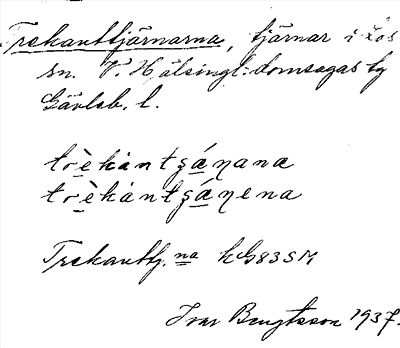 Trekanttjärnarna, tjärnar i Los
sn. V. Hälsingl:domsagas tg
Gävleb. l.
trèkàntʂáɳana
trèkántʂáɳena
Trekanttj. na kG83SM
Ivar Bengtsson 1937.